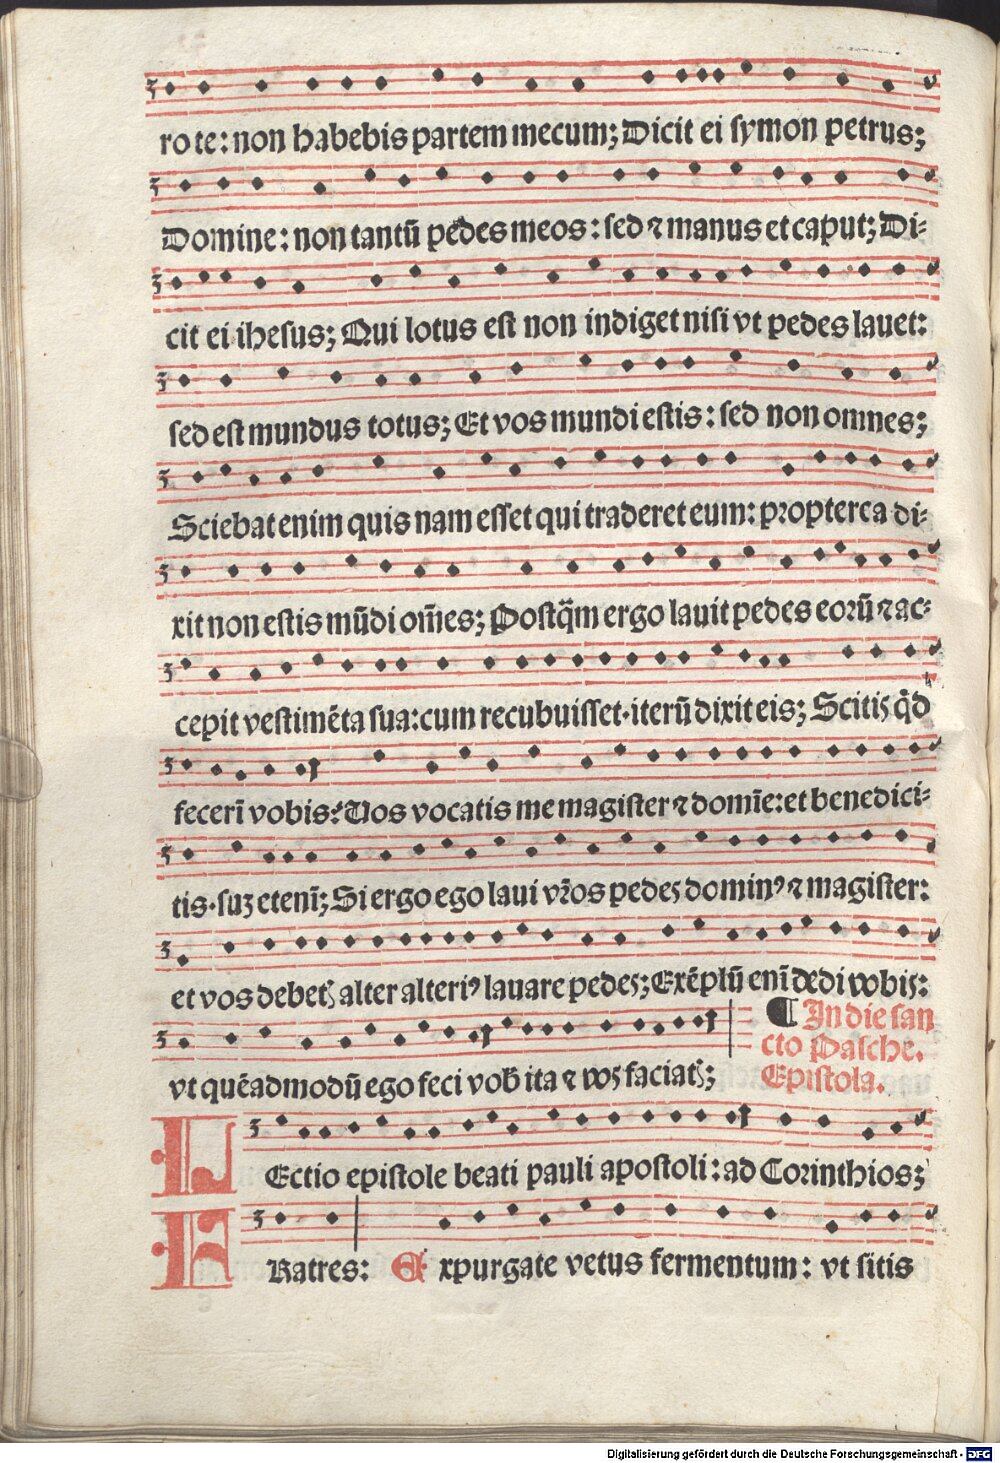 ro te: non habebis partem mecum; Dicit ei symon petrus;
Domine: non tantū pedes meos: sed ⁊ manus et caput; Di⸗
cit ei ihesus; Qui lotus est non indiget nisi vt pedes lauet:
sed est mundus totus; Et vos mundi estis: sed non omnes;
Sciebat enim quis nam esset qui traderet eum: propterea di⸗
xit non estis mūdi om̄es; Postq̄m ergo lauit pedes eorū ⁊ ac⸗
cepit vestimēta sua: cum recubuisset · iterū dixit eis; Scitis q̄d
fecerī vobis? Vos vocatis me magister ⁊ domīe: et benedici⸗
tis · suꝫ etenī; Si ergo ego laui vr̄os pedes dominꝰ ⁊ magister:
et vos debetꝭ alter alteriꝰ lauare pedes; Exēplū enī dedi vobis:
¶ In die san
cto Pasche.
Epistola.
vt quēadmodū ego feci vob̄ ita ⁊ vos faciatꝭ;
LEctio epistole beati pauli apostoli: ad Corinthios;
FRatres: Expurgate vetus fermentum: vt sitis
Digitalisierung gefördert durch die Deutsche Forschungsgemeinschaft - DFG